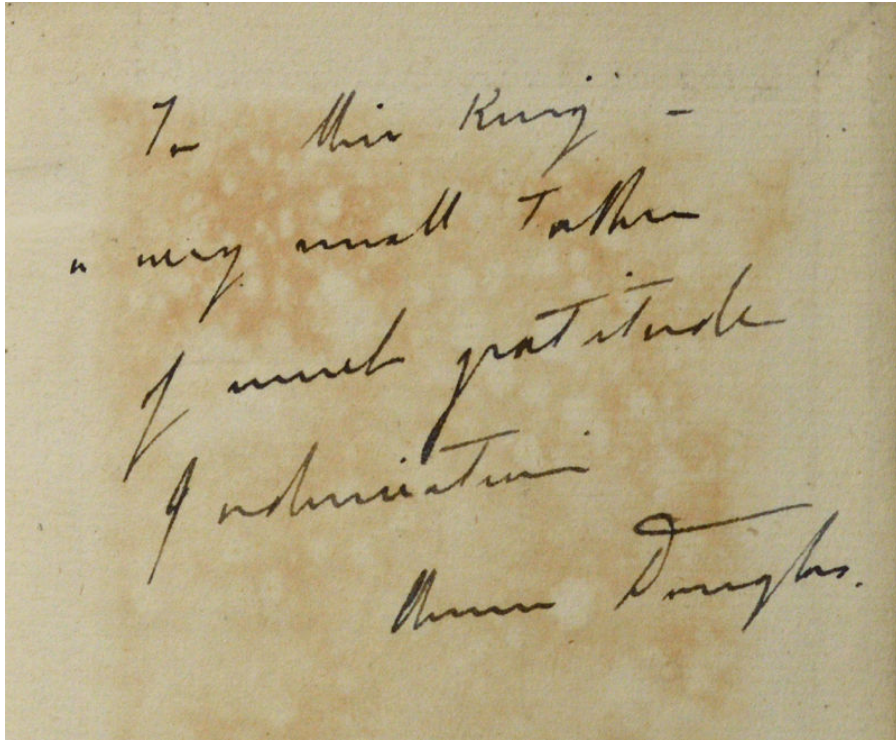 To Miss King –
a very small token
of much gratitude
& admiration
Douglas.